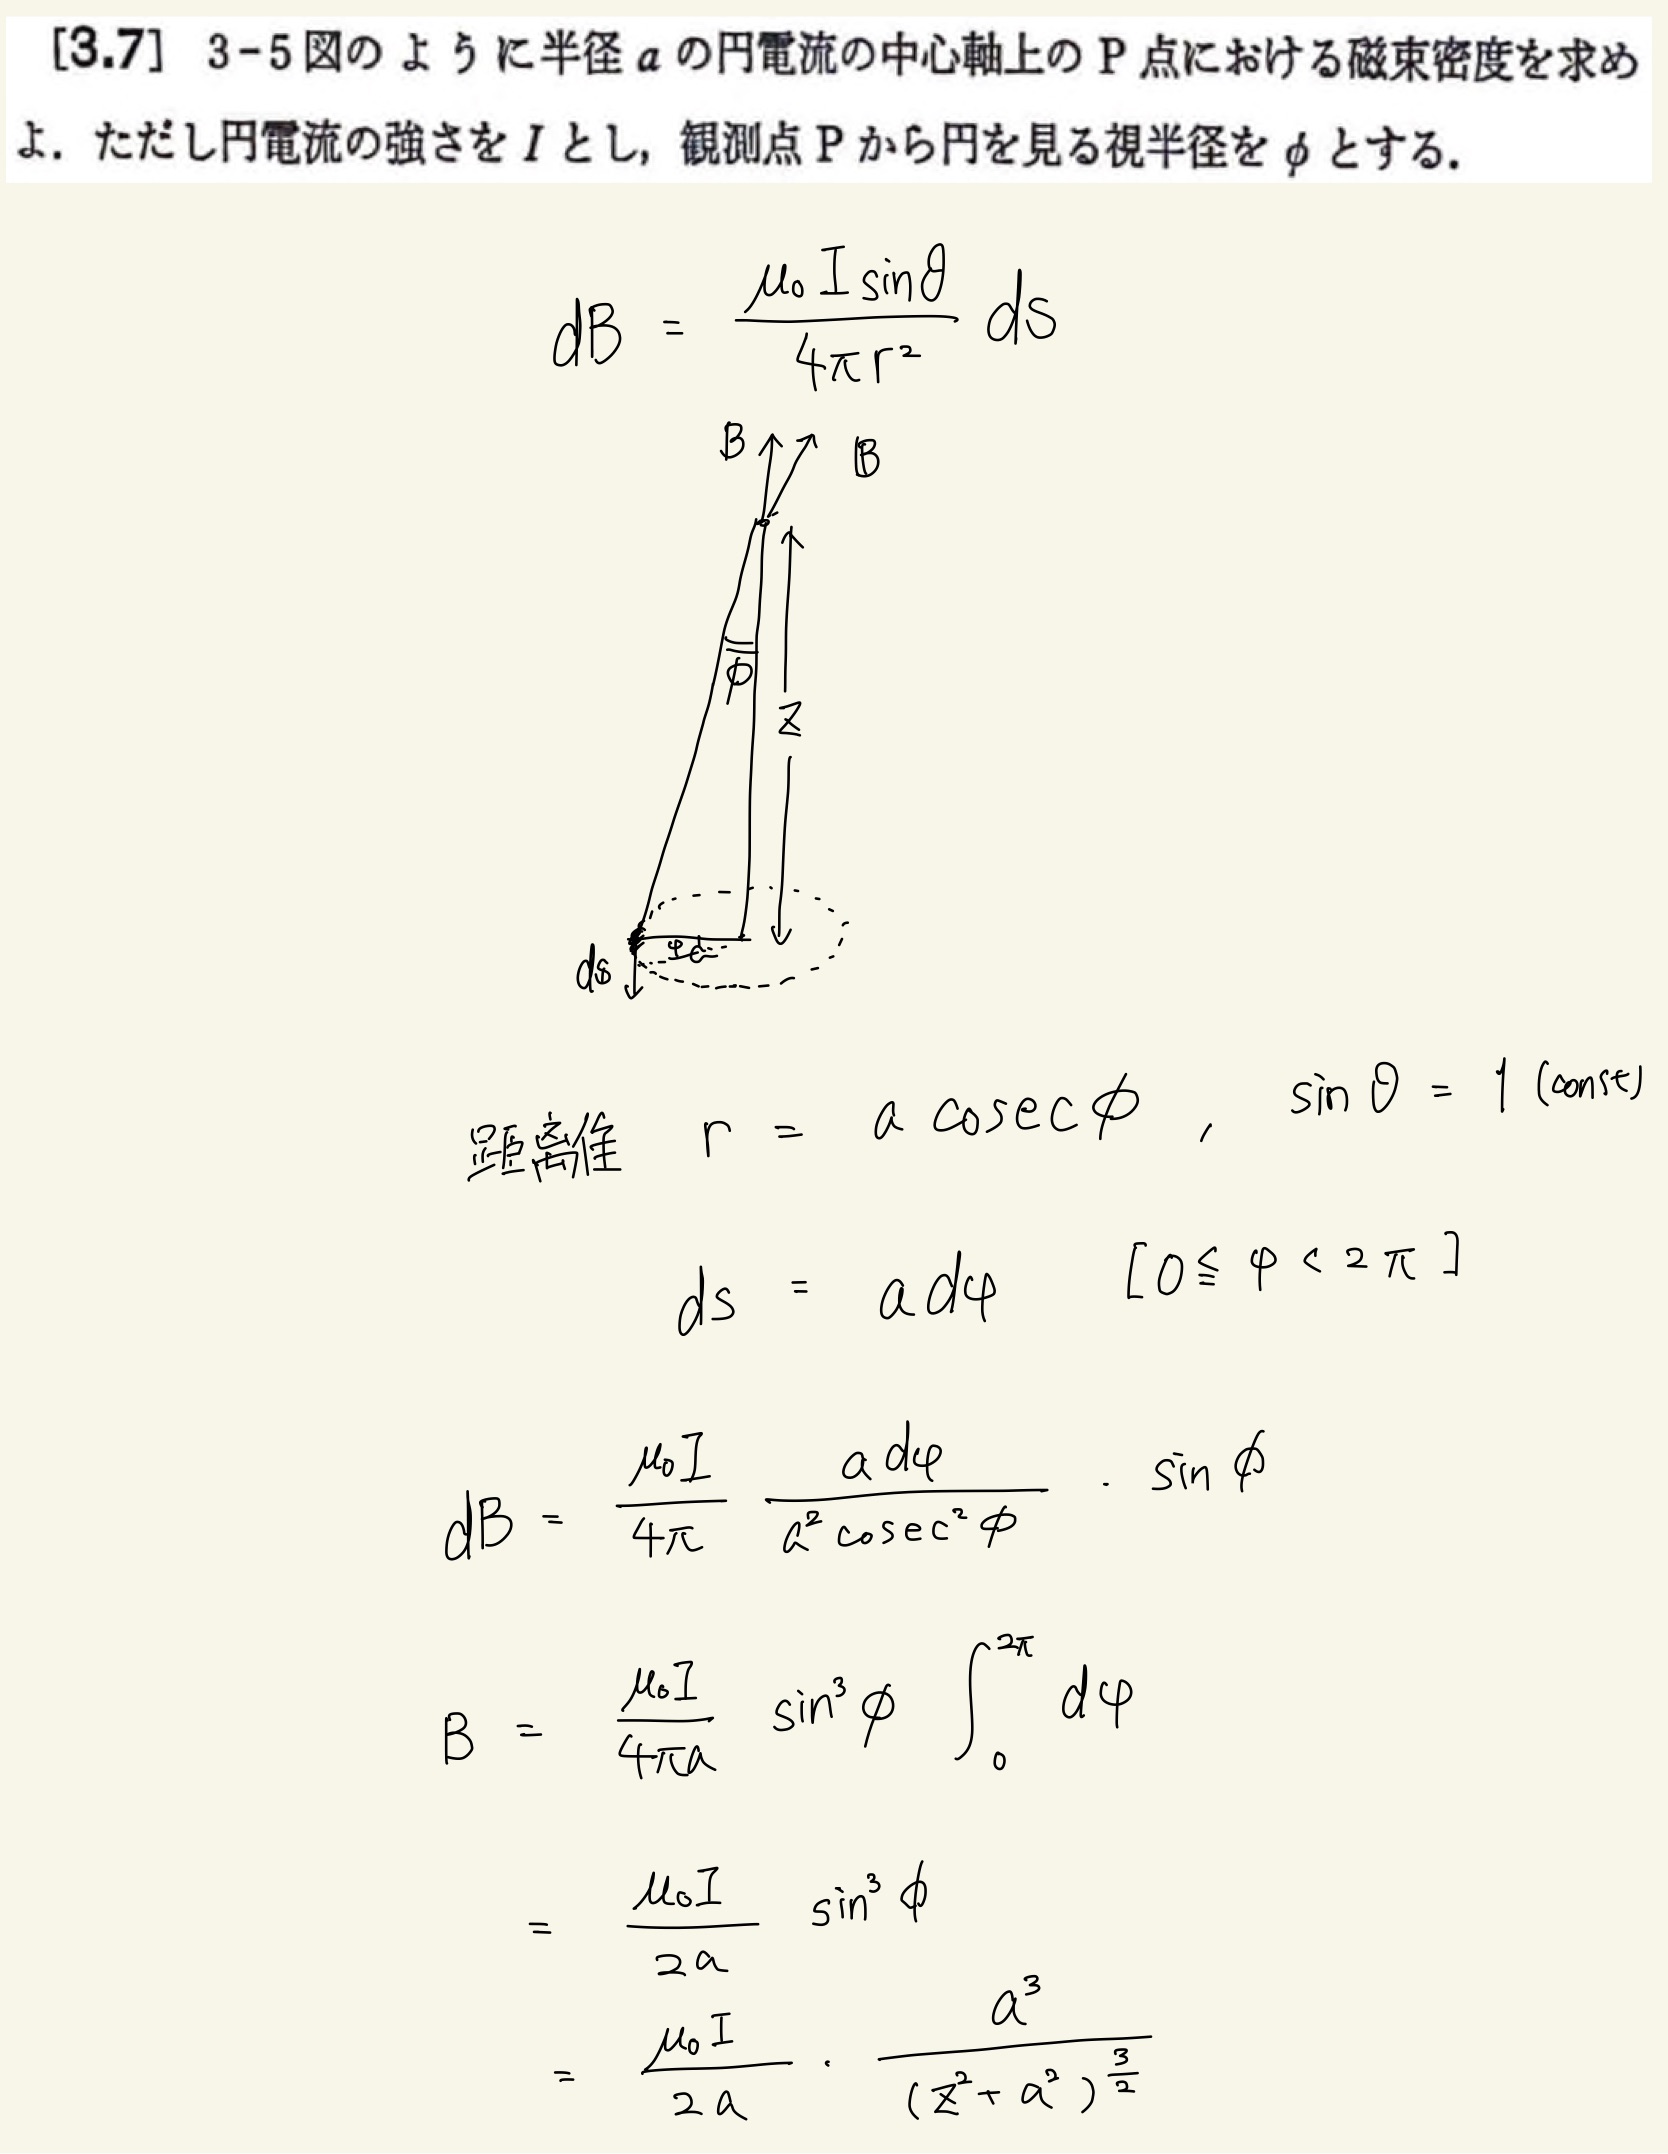 [3.7] 3-5図のように半径 a の円電流の中心軸上の P 点における磁束密度を求め
よ．ただし円電流の強さを I とし，観測点 P から円を見る視半径を φ とする．
dB = μ₀ I sinθ / 4πr² ds
B B
ϕ
z
φ a
ds
距離 r = a cosec ϕ , sin θ = 1 (const)
ds = a dφ [0 ≦ φ < 2π]
dB = μ₀I / 4π a dφ / a² cosec² ϕ · sin ϕ
B = μ₀I / 4πa sin³ ϕ ∫₀^2π dφ
= μ₀I / 2a sin³ ϕ
= μ₀I / 2a · a³ / (z² + a²)^3/2